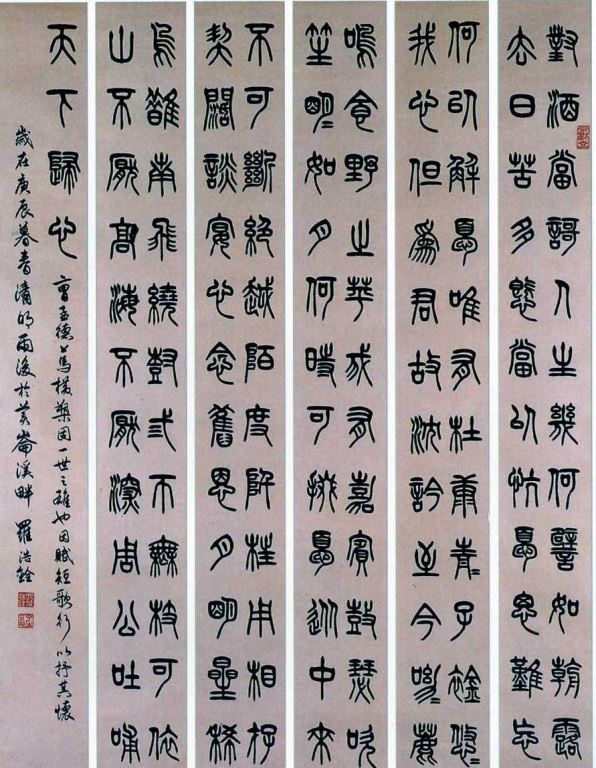 對酒當謌人生幾何譬如朝露
去日苦多慨當以忼憂思難忘
何以解憂唯有杜康青〻子衿悠〻
我心但為君故沈吟至今呦〻鹿
鳴食野之苹我有嘉賓鼓瑟吹
笙明〻如月何時可掇憂從中來
不可斷絕越陌度阡枉用相存
契闊談宴心念舊恩月明星稀
烏鵲南飛繞尌弎帀無枝可依
山不厭高海不厭深周公吐哺
天下歸心 曹孟德上馬橫槊固一世之雄也因賦短歌行以抒其懷
歲在庚辰暮春清明雨後於黃崙溪畔 羅浩銓